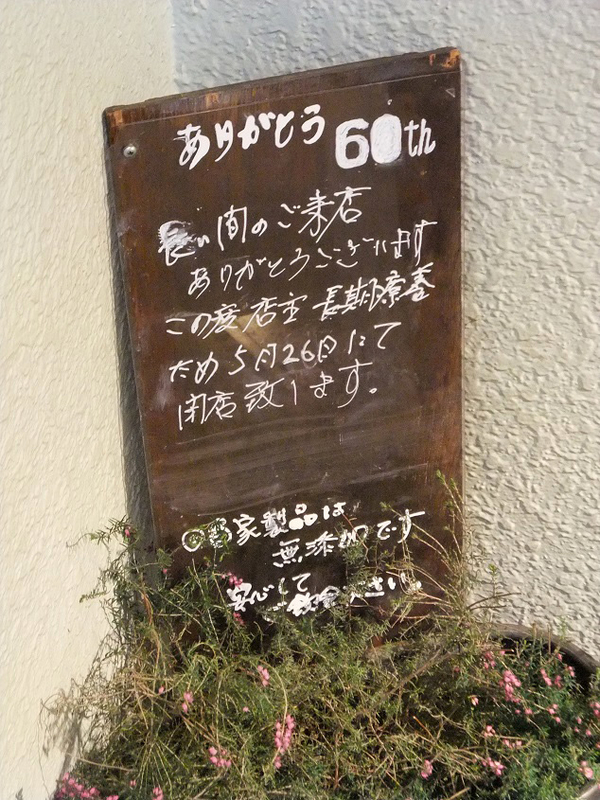 ありがとう 60th
長い間のご来店
ありがとうございます
この度店主 長期療養
ため5月26日にて
閉店致します。
自家製品は
無添加です
安心して
ご飲食ください。